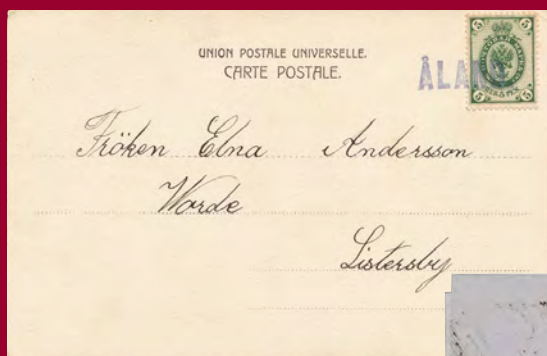 UNION POSTALE UNIVERSELLE.
CARTE POSTALE.
5 5
5 5
Fröken Elna Andersson
Worde
Listersby